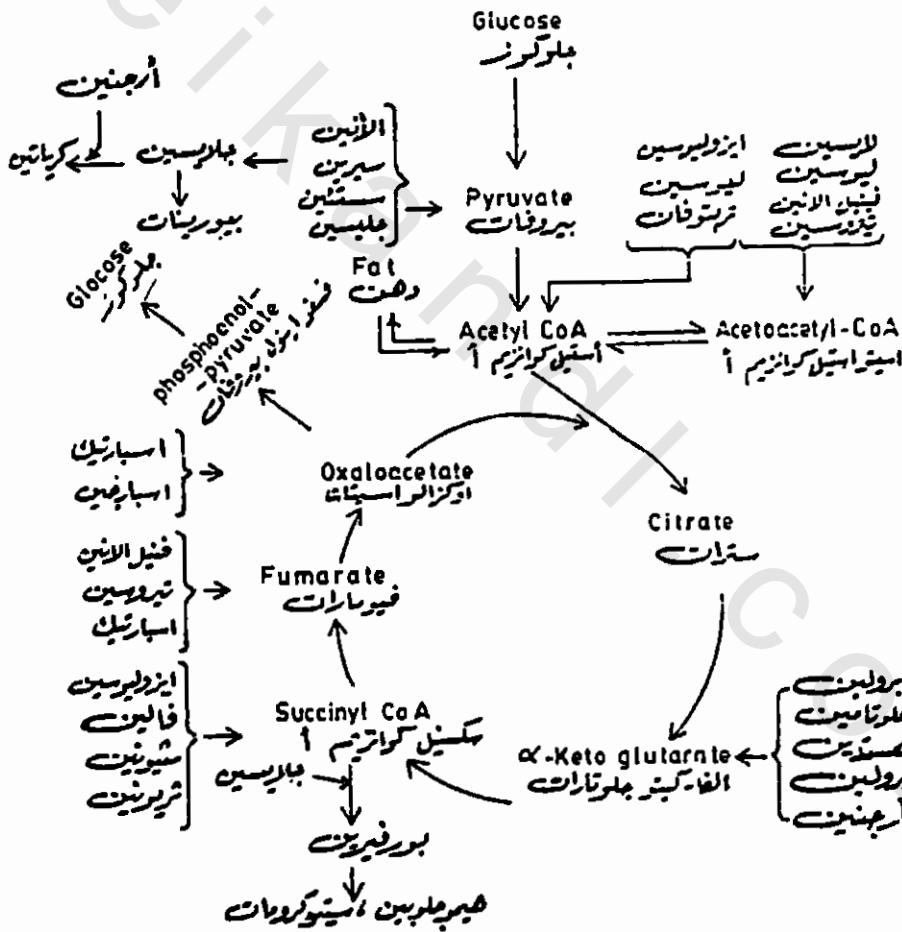 Glucose
جلوكوز
أرجنين
كرياتين
جلايسين
بيورينات
الأنين
سيرين
سستئين
جليسين
Pyruvate
بيروفات
ايزوليوسين
ليوسين
تربتوفات
لايسين
ليوسين
فينيل الانين
تيروسين
Glocose
جلوكوز
phosphoenol-
-pyruvate
Fat
دهن
Acetyl CoA
أستيل كوانزيم أ
Acetoacetyl-CoA
اسيتواستيل كوانزيم أ
اسبارتيك
اسبارجين
Oxaloacetate
اوكزالواسيتات
Citrate
سترات
فنيل الانين
تيروسين
اسبارتيك
Fumarate
فيومارات
ايزوليوسين
فالين
مثيونين
ثريونين
Succinyl CoA
سكسنيل كوانزيم أ
جلايسين
α-Keto glutarate
الفا-كيتو جلوتارات
برولين
جلوتامين
هستدين
برولين
أرجنين
بورفيرين
هيموجلوبين ، سيتوكرومات
eikandl.co